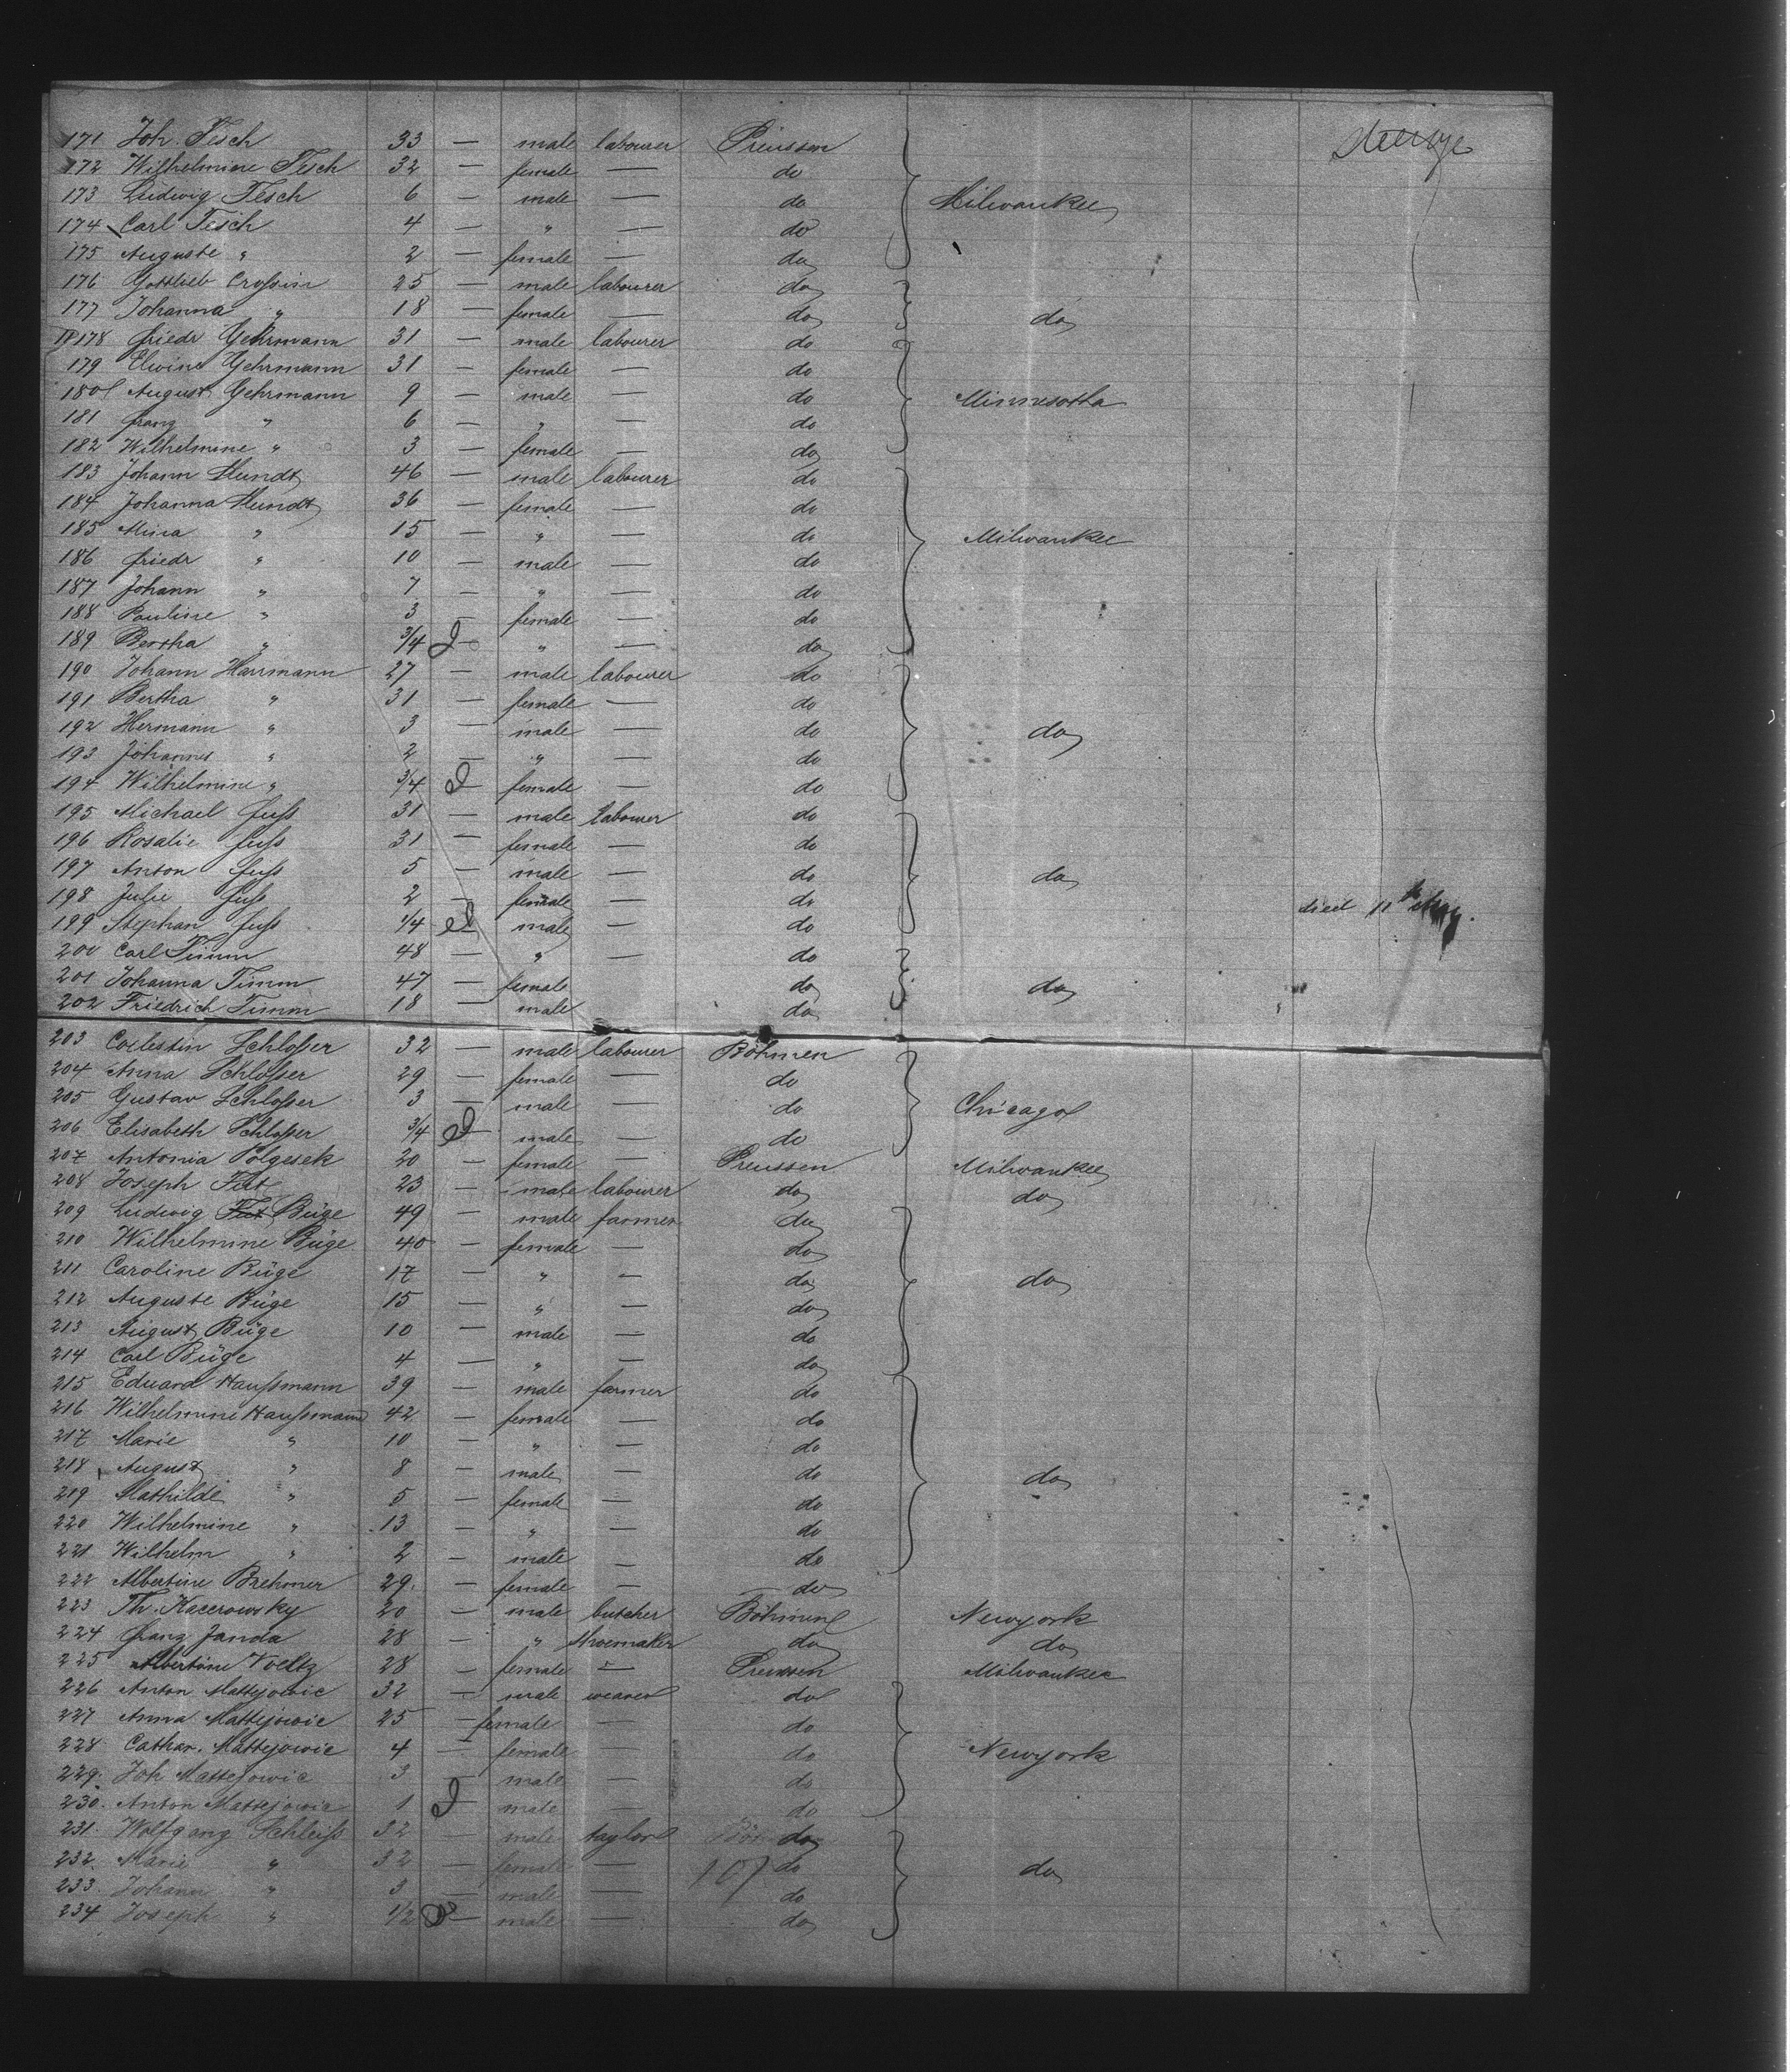 171 Joh. Tesch 33 — male labourer Preussen Steerage
172 Wilhelmine Tesch 32 — female — do
173 Ludwig Tesch 6 — male — do Milwaukee
174 Carl Tesch 4 — " — do
175 Auguste " 2 — female — do
176 Gottlieb Crossin 25 — male labourer do
177 Johanna " 18 — female — do do
178 Friedr Gehrmann 31 — male labourer do
179 Elwine Gehrmann 31 — female — do
180 August Gehrmann 9 — male — do Minnesotta
181 Franz " 6 — " — do
182 Wilhelmine " 3 — female — do
183 Johann Hundt 46 — male labourer do
184 Johanna Hundt 36 — female — do
185 Mina " 15 — " — do Milwaukee
186 Friedr " 10 — male — do
187 Johann " 7 — " — do
188 Pauline " 3 — female — do
189 Bertha " 3/4 — " — do
190 Johann Harrmann 27 — male labourer do
191 Bertha " 31 — female — do
192 Hermann " 3 — male — do do
193 Johannes " 2 — " — do
194 Wilhelmine " 3/4 — female — do
195 Michael Fuss 31 — male labourer do
196 Rosalie Fuss 31 — female — do
197 Anton Fuss 5 — male — do do
198 Julie Fuss 2 — female — do died 11th
199 Stephan Fuss 1/4 — male — do
200 Carl Timm 48 — " — do
201 Johanna Timm 47 — female do do
202 Friedrich Timm 18 — male do
203 Coelestin Schlosser 32 — male labourer Böhmen
204 Anna Schlosser 29 — female — do
205 Gustav Schlosser 3 — male — do Chicago
206 Elisabeth Schlosser 3/4 — male — do
207 Antonia Polgesek 20 — female — Preussen Milwaukee
208 Joseph Fut 23 — male labourer do do
209 Ludwig Fut Büge 49 — male farmer do
210 Wilhelmine Büge 40 — female — do
211 Caroline Büge 17 — " — do do
212 Auguste Büge 15 — " — do
213 August Büge 10 — male — do
214 Carl Büge 4 — " — do
215 Eduard Haussmann 39 — male farmer do
216 Wilhelmine Haussmann 42 — female — do
217 Marie " 10 — " — do
218 August " 8 — male — do do
219 Mathilde " 5 — female — do
220 Wilhelmine " 13 — " — do
221 Wilhelm " 2 — male — do
222 Albertine Brehmer 29 — female — do
223 Th. Kacerowsky 20 — male butcher Böhmen Newyork
224 Franz Janda 28 — " shoemaker do do
225 Albertine Voeltz 28 — female — Preussen Milwaukee
226 Anton Mattejowic 32 — male weaver do
227 Anna Mattejowic 25 — female — do
228 Cathar. Mattejowic 4 — female — do Newyork
229. Joh Mattejowic 3 — male — do
230. Anton Mattejowic 1 — male — do
231. Wolfgang Schleiss 32 — male taylor do
232. Marie " 32 — female — 107 do do
233. Johann " 3 — male — do
234 Joseph " 1/2 — male — do